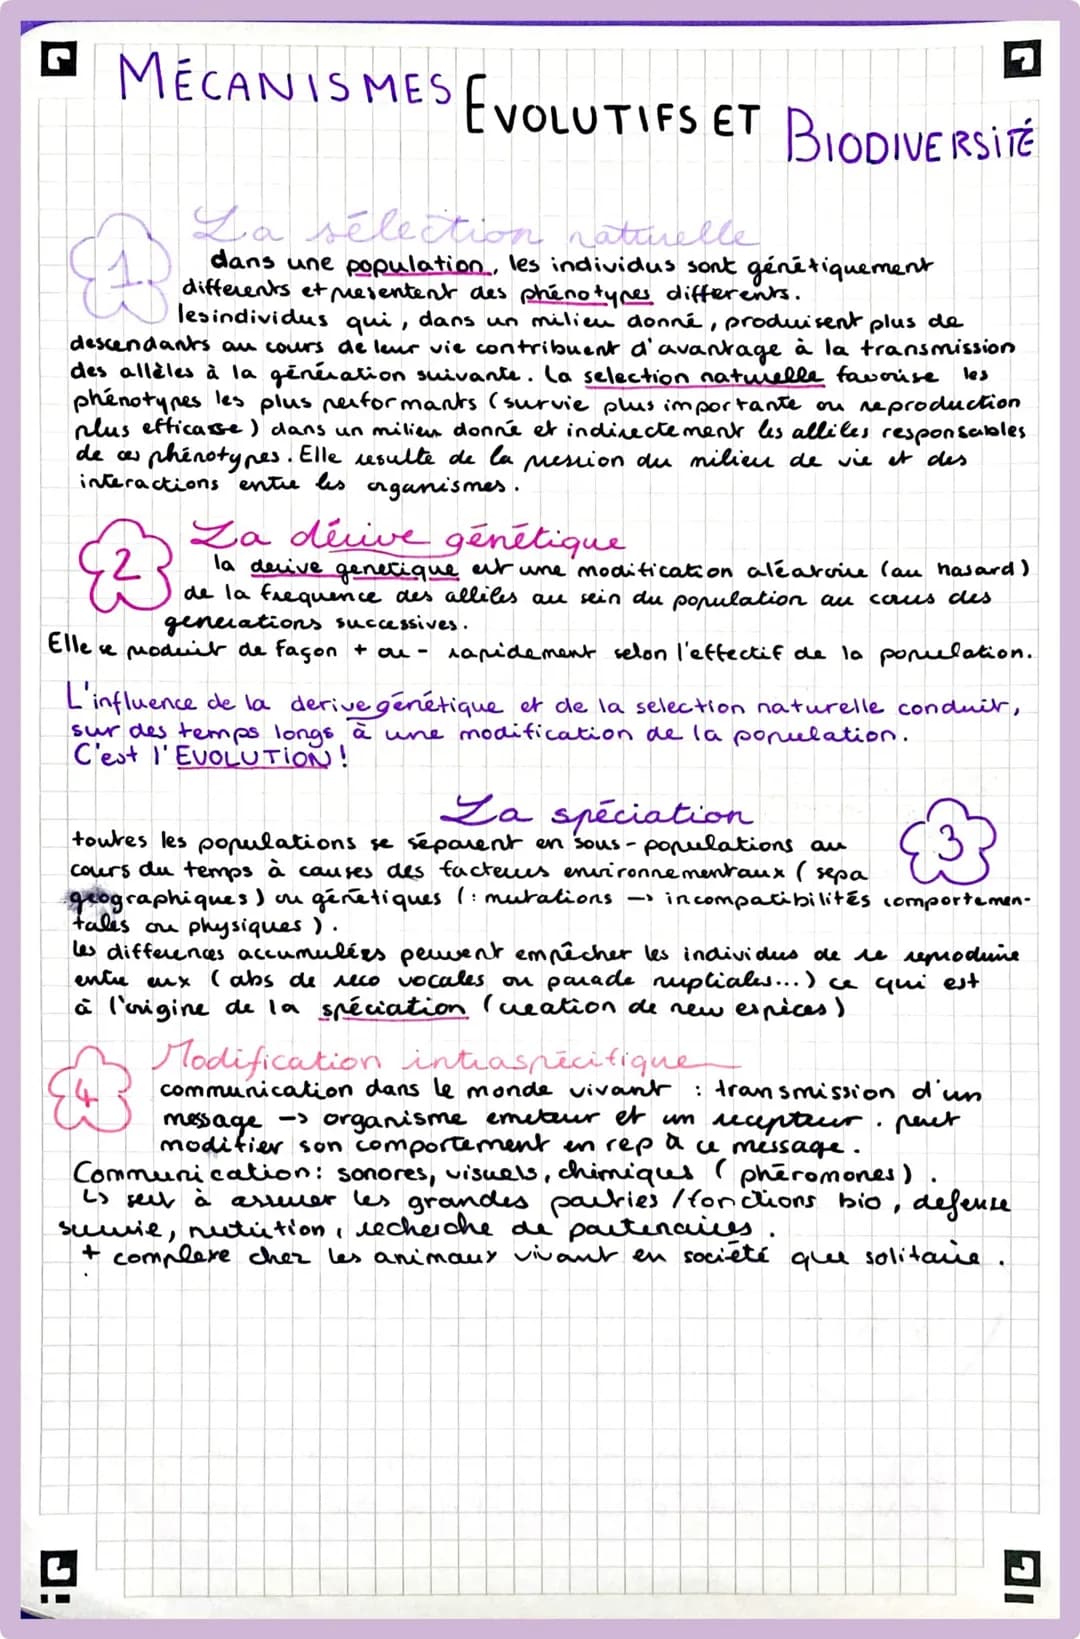 MÉCANISMES EVOLUTIFS ET BIODIVERSITÉ
1 La sélection naturelle
dans une population, les individus sont génétiquement
differents et presentent des phénotypes differents.
les individus qui, dans un milieu donné, produisent plus de
descendants au cours de leur vie contribuent d'avantage à la transmission
des allèles à la génération suivante. La selection naturelle favorise les
phénotypes les plus performants (survie plus importante ou reproduction
plus efficasse) dans un milieu donné et indirectement les alliles responsables
de ces phénotypes. Elle resulte de la pression du milieu de vie et des
interactions entre les organismes.
2 La dérive génétique
la derive genetique est une modification aléatoire (au hasard)
de la frequence des alliles au sein du population au cours des
generations successives.
Elle se produit de façon + ou - rapidement selon l'effectif de la population.
L'influence de la derive génétique et de la selection naturelle conduit,
sur des temps longs à une modification de la population.
C'est l'EVOLUTION!
La spéciation 3
toutes les populations se séparent en sous-populations au
cours du temps à causes des facteurs environnementaux (sepa
geographiques) ou génétiques (: mutations → incompatibilités comportemen-
tales ou physiques).
les differences accumulées peuvent empêcher les individus de se reproduire
entre eux (abs de reco vocales ou parade nuptiales...) ce qui est
à l'origine de la spéciation (creation de new espèces)
4 Modification intraspécifique
communication dans le monde vivant : transmission d'un
message → organisme emeteur et un recepteur. peut
modifier son comportement en rep à ce message.
Communication: sonores, visuels, chimiques (phéromones).
↳ sert à assurer les grandes partries /fonctions bio, defense
survie, nutrition, recherche de partenaires.
+ complexe chez les animaux vivant en société que solitaire.